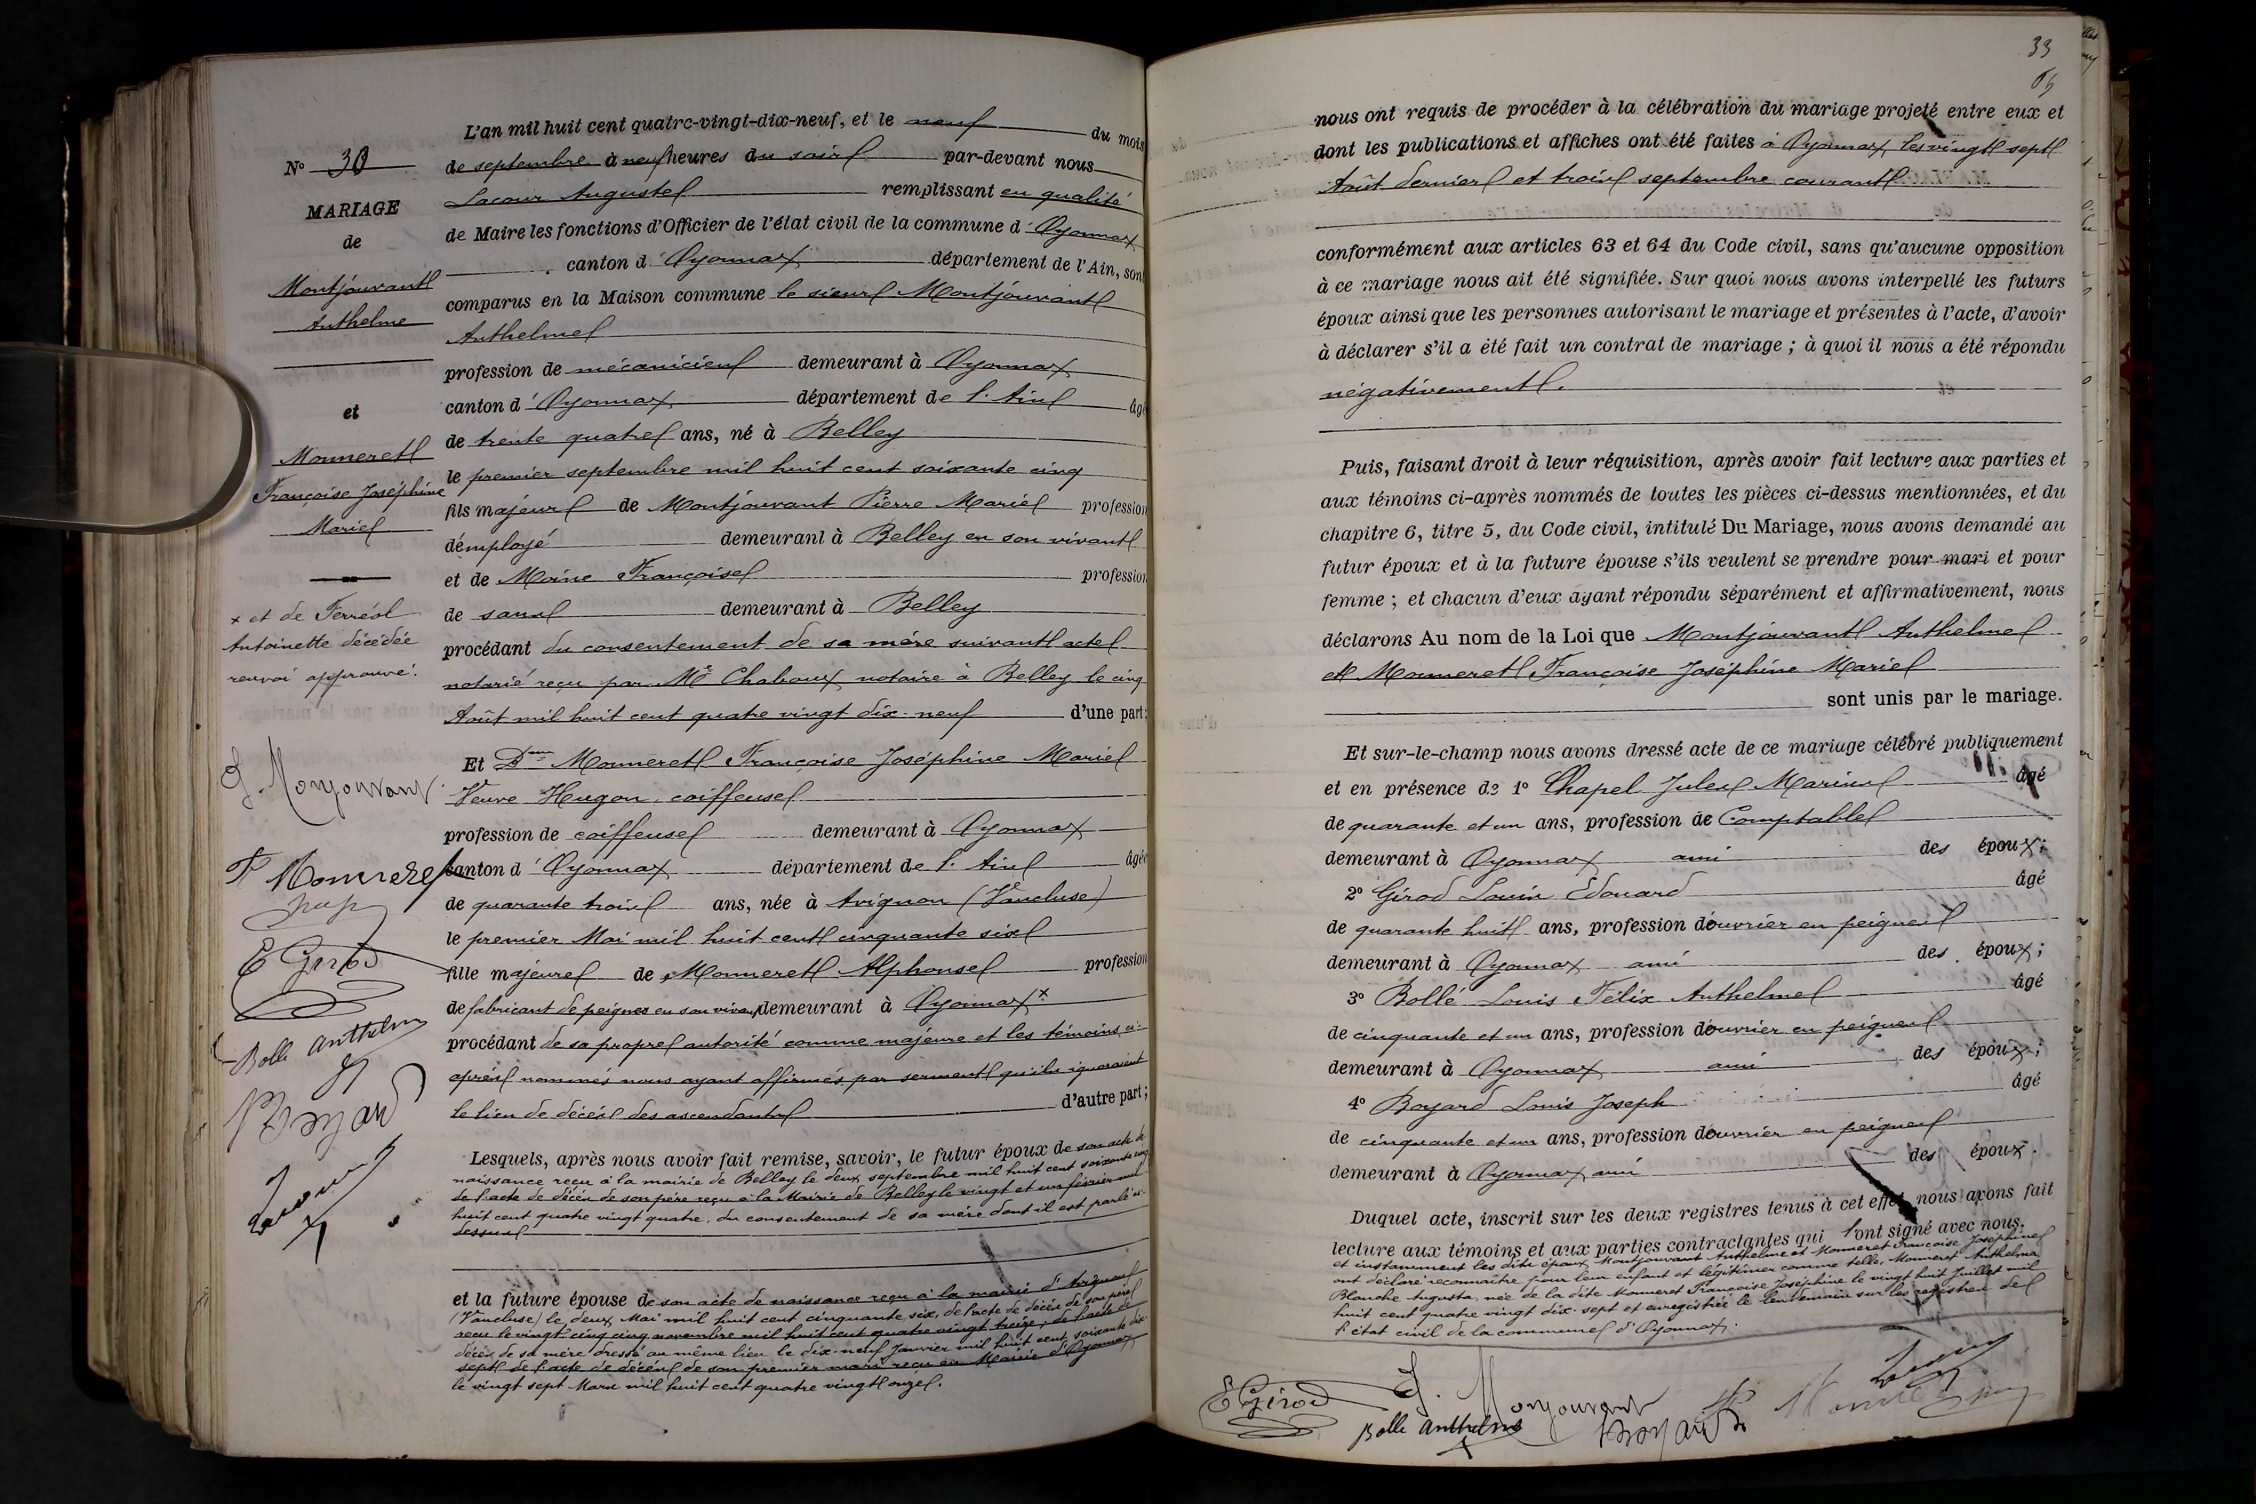 L'an mil huit cent quatre-vingt-dix-neuf, et le neuf du mois
de septembre à neuf heures du soir par-devant nous
Lacour Auguste remplissant en qualité
de Maire les fonctions d'Officier de l'état civil de la commune d'Oyonnax
canton d'Oyonnax département de l'Ain, sont
comparus en la Maison commune le sieur Montjouvant
Anthelme
profession de mécanicien demeurant à Oyonnax
canton d'Oyonnax département de l'Ain âgé
de trente quatre ans, né à Belley
le premier septembre mil huit cent soixante cinq
fils majeur de Montjouvant Pierre Marie profession
d'employé demeurant à Belley en son vivant
et de Moine Françoise profession
de sans demeurant à Belley
procédant du consentement de sa mère suivant acte
notarié reçu par Me Chaboux notaire à Belley le cinq
Août mil huit cent quatre vingt dix-neuf d'une part;
Et Dme Monneret Françoise Joséphine Marie
Veuve Hugon, coiffeuse
profession de coiffeuse demeurant à Oyonnax
canton d'Oyonnax département de l'Ain âgée
de quarante trois ans, née à Avignon (Vaucluse)
le premier Mai mil huit cent cinquante six
fille majeure de Monneret Alphonse profession
de fabricant de peignes en son vivant demeurant à Oyonnax x
procédant de sa propre autorité comme majeure et les témoins ci-
après nommés nous ayant affirmés par serment qu'ils ignoraient
le lieu de décès des ascendants d'autre part;
Lesquels, après nous avoir fait remise, savoir, le futur époux de son acte de
naissance reçu à la mairie de Belley le deux septembre mil huit cent soixante cinq
de l'acte de décès de son père reçu à la Mairie de Belley le vingt et un février mil
huit cent quatre vingt quatre, du consentement de sa mère dont il est parlé ci-
dessus
et la future épouse de son acte de naissance reçu à la mairie d'Avignon
(Vaucluse) le deux Mai mil huit cent cinquante six, de l'acte de décès de son père
reçu le vingt cinq cinq novembre mil huit cent quatre vingt treize, de l'acte de
décès de sa mère dressé au même lieu le dix-neuf Janvier mil huit cent soixante dix
sept de l'acte de décès de son premier mari reçu en Mairie d'Oyonnax
le vingt sept Mars mil huit cent quatre vingt onze.
No 30
MARIAGE
de
Montjouvant
Anthelme
et
Monneret
Françoise Joséphine
Marie
x et de Ferréol
Antoinette décédée
renvoi approuvé.
J. Monjouvant
F Monneret
E Girod
Bolle Anthelme
Boyard
Lacour
33
nous ont requis de procéder à la célébration du mariage projeté entre eux et
dont les publications et affiches ont été faites à Oyonnax, les vingt sept
Août dernier et trois septembre courant
conformément aux articles 63 et 64 du Code civil, sans qu'aucune opposition
à ce mariage nous ait été signifiée. Sur quoi nous avons interpellé les futurs
époux ainsi que les personnes autorisant le mariage et présentes à l'acte, d'avoir
à déclarer s'il a été fait un contrat de mariage ; à quoi il nous a été répondu
négativement.
Puis, faisant droit à leur réquisition, après avoir fait lecture aux parties et
aux témoins ci-après nommés de toutes les pièces ci-dessus mentionnées, et du
chapitre 6, titre 5, du Code civil, intitulé Du Mariage, nous avons demandé au
futur époux et à la future épouse s'ils veulent se prendre pour mari et pour
femme ; et chacun d'eux ayant répondu séparément et affirmativement, nous
déclarons Au nom de la Loi que Montjouvant Anthelme
et Monneret Françoise Joséphine Marie
sont unis par le mariage.
Et sur-le-champ nous avons dressé acte de ce mariage célébré publiquement
et en présence de 1o Chapel Jules Marius âgé
de quarante et un ans, profession de Comptable
demeurant à Oyonnax ami des époux;
2o Girod Louis Edouard âgé
de quarante huit ans, profession d'ouvrier en peignes
demeurant à Oyonnax ami des époux;
3o Bollé Louis Félix Anthelme âgé
de cinquante et un ans, profession d'ouvrier en peignes
demeurant à Oyonnax ami des époux;
4o Boyard Louis Joseph âgé
de cinquante et un ans, profession d'ouvrier en peignes
demeurant à Oyonnax ami des époux.
Duquel acte, inscrit sur les deux registres tenus à cet effet, nous avons fait
lecture aux témoins et aux parties contractantes qui l'ont signé avec nous.
et instamment les dits époux Montjouvant Anthelme et Monneret Françoise Joséphine
ont déclaré reconnaître pour leur enfant et légitimer comme telle, Monneret Anthelma
Blanche Augusta, née de la dite Monneret Françoise Joséphine le vingt huit Juillet mil
huit cent quatre vingt dix-sept et enregistrée le lendemain sur les registres de
l'état civil de la commune d'Oyonnax.
Lacour
E Girod
J. Monjouvant
Bolle Anthelme
Boyard